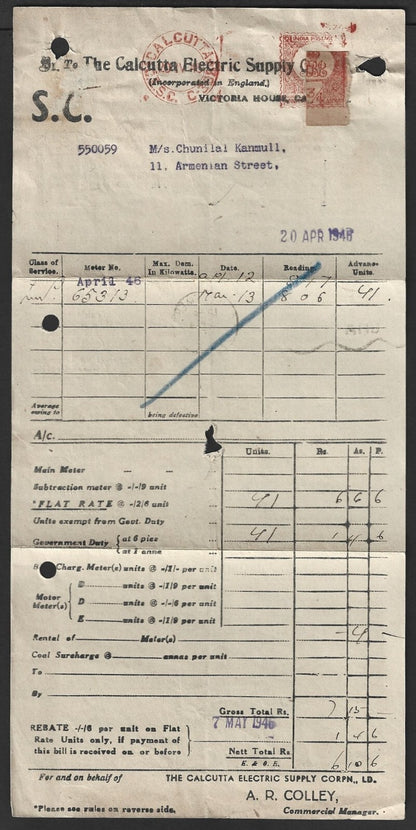 Dr. To The Calcutta Electric Supply
(Incorporated in England,)
VICTORIA HOUSE,
CALCUTTA
INDIA POSTAGE
S.C.
550059 M/s.Chunilal Kanmull,
11. Armenian Street,
20 APR 1946
Class of Service. Meter No. Max. Dem. In Kilowatts. Date. Reading. Advance Units.
April 46
65313 Mar 13 806 41
Average owing to being defective
A/c.
Units. Rs. As. P.
Main Meter ... ...
Subtraction meter @ -/-/9 unit
*FLAT RATE @ -/2/6 unit 41 6 6 6
Units exempt from Govt. Duty
Government Duty { at 6 pies 41 1 4 6
at 1 anne
Charg. Meter(s) units @ -/1/- per unit
Motor Meter(s) { D units @ -/1/9 per unit
D units @ -/-/6 per unit
E units @ -/1/9 per unit
Rental of Meter(s) - 4 -
Coal Surcharge @ annas per unit
To
By
Gross Total Rs. 7 15 -
7 MAY 1946
REBATE -/-/6 per unit on Flat
Rate Units only, if payment of
this bill is received on or before
1 4 6
Nett Total Rs. 6 10 6
E. & O. E.
For and on behalf of THE CALCUTTA ELECTRIC SUPPLY CORPN., LD.
A. R. COLLEY,
*Please see rules on reverse side. Commercial Manager.